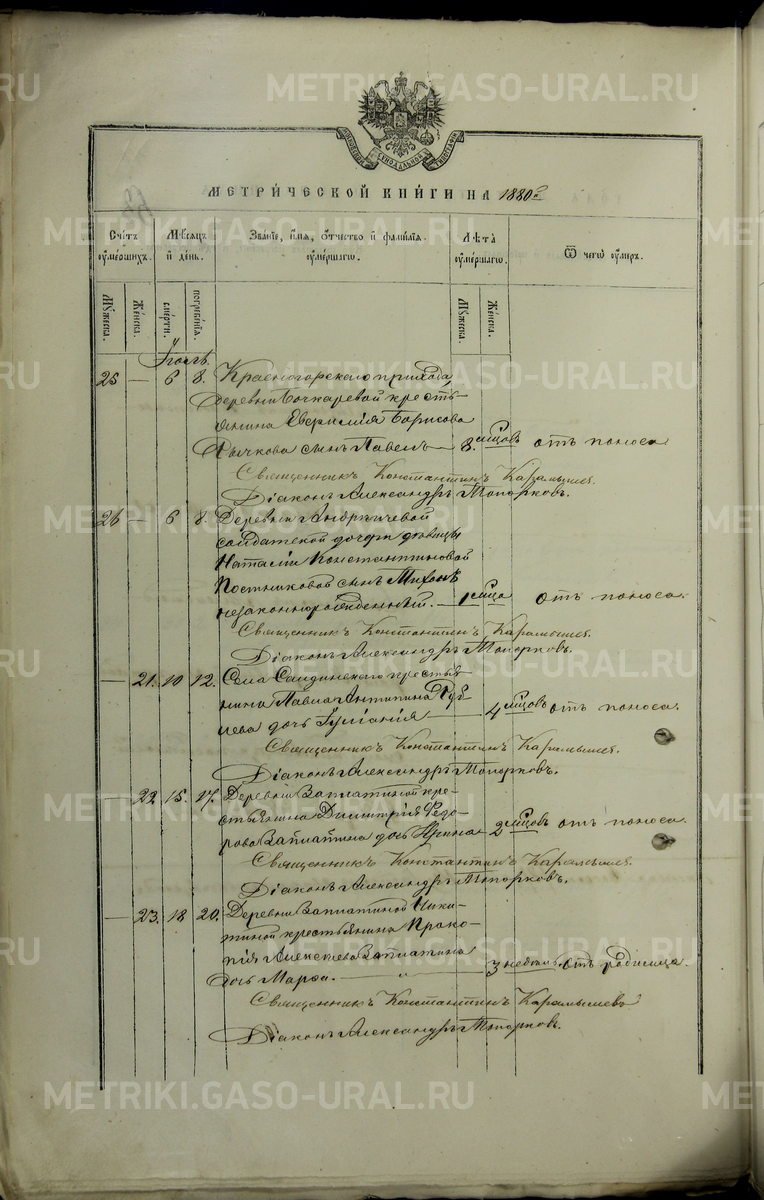 МЕТРИ́ЧЕСКОЙ КНИ́ГИ НА 1880 г.
Сче́тъ ᲂу҆ме́ршихъ.
Мѣсяцъ и де́нь.
Зва́нїе, и҆́мя, ѻ҆́тчество и҆ фами́лїя ᲂу҆ме́ршагѡ.
Лѣ́та ᲂу҆ме́ршагѡ.
Ѿ чегѡ̀ ᲂу҆́меръ.
Мꙋ́жеска.
Же́нска.
сме́рти.
погребе́нїя.
Мꙋ́жеска.
Же́нска.
Іюль.
25 — 6 8. Красногорскаго прихода,
деревни Бочкаревой кресть-
янина Борисова
сынъ Павелъ — 8. мѣсцовъ отъ поноса
Священникъ Константинъ Карамышев.
Діаконъ Александръ Топорковъ.
26 — 6 8. Деревни Андрѣичевой
солдатской дочери дѣвицы
Наталіи Константиновой
Постниковой сынъ Тихонъ
незаконнорожденный. — 1 мѣсца отъ поноса.
Священникъ Константинъ Карамышев.
Діаконъ Александръ Топорковъ.
— 21. 10 12. Села крестья-
нина Павла Антипина
дочь Іуліанія — 4 мѣсцовъ отъ поноса.
Священникъ Константинъ Карамышев.
Діаконъ Александръ Топорковъ.
— 22. 15. 17. Деревни Заплатиной кре-
стьянина Димитрія Ѳедо-
рова Заплатина дочь Ирина — 2 мѣсцовъ отъ поноса.
Священникъ Константинъ Карамышев.
Діаконъ Александръ Топорковъ.
— 23. 18 20. Деревни Заплатиной Ники-
тиной крестьянина Проко-
пія Алексѣева Заплатина
дочь Марѳа. — 3 недѣль отъ родимца.
Священникъ Константинъ Карамышевъ
Діаконъ Александръ Топорковъ.
METRIKI.GASO-URAL.RU